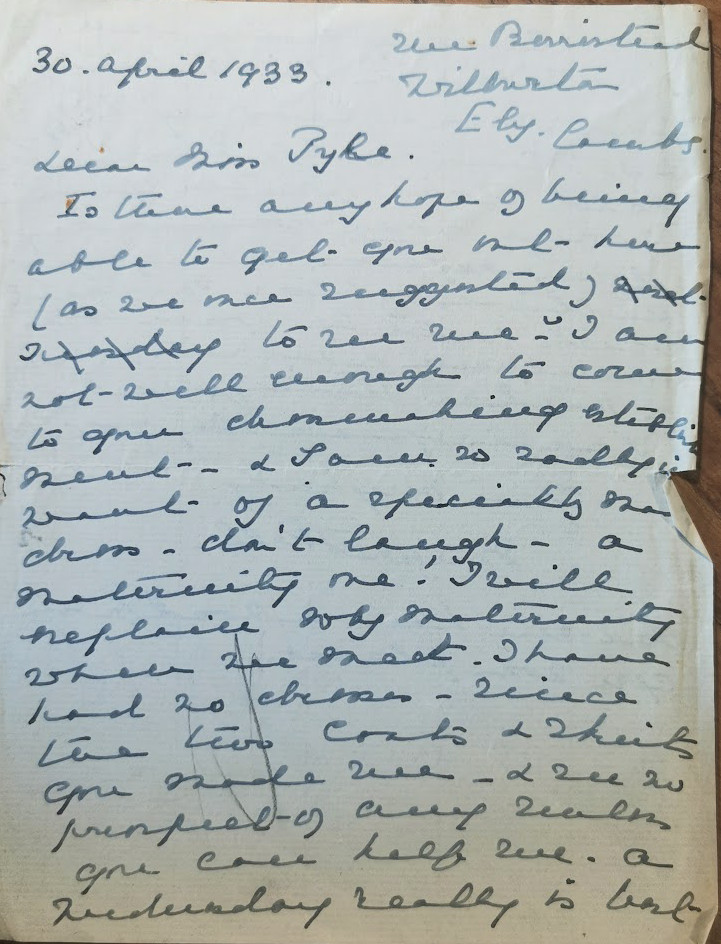 30. April 1933.
The Berristead
Wilburton
Ely. Cambs.
Dear Miss Pyke.
Is there any hope of being
able to get you out here
(as we once suggested) next
Tuesday to see me? I am
not well enough to come
to your dressmaking establish
ment - & I am so badly in
want of a specially ma
dress - don't laugh - a
maternity one! I will
explain why maternity
when we meet. I have
had no dresses - since
the two coats & skirts
you made me - & see no
prospect of any unless
you can help me. A
Wednesday really is best